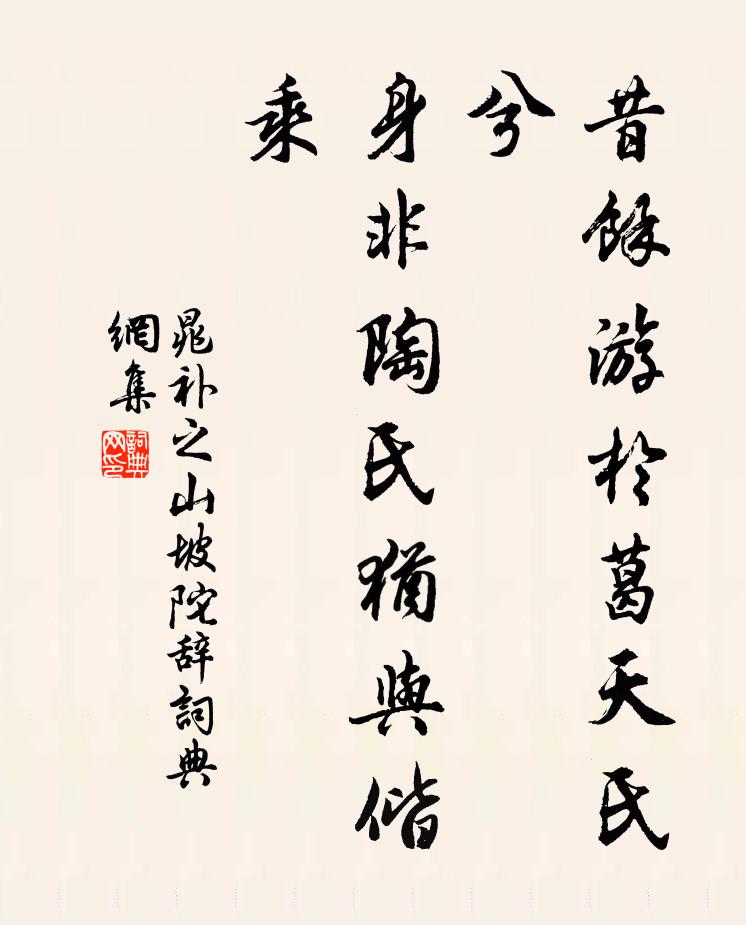 昔餘游於葛天氏
兮
身非陶氏猶與偕
乘
晁补之山坡陀辞詞典
網集
詞典
网印